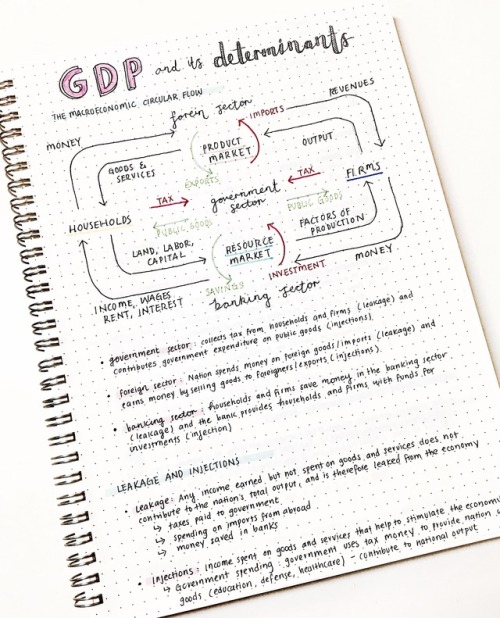 GDP and its determinants
THE MACROECONOMIC CIRCULAR FLOW
forein sector
IMPORTS
REVENUES
MONEY
PRODUCT
MARKET
OUTPUT
GOODS &
SERVICES
EXPORTS
TAX
government
sector
TAX
FIRMS
HOUSEHOLDS
PUBLIC GOODS
PUBLIC GOODS
FACTORS OF
PRODUCTION
LAND, LABOR,
CAPITAL
RESOURCE
MARKET
INVESTMENT
MONEY
INCOME, WAGES
RENT, INTEREST
SAVINGS
banking sector
• government sector: collects tax from households and firms (leakage) and
contributes government expenditure on public goods (injections).
• foreign sector: Nation spends money on foreign goods/imports (leakage) and
earns money by selling goods to foreigners/exports (injections).
• banking sector: households and firms save money in the banking sector
(leakage) and the bank provides households and firms with funds for
investments (injection)
LEAKAGE AND INJECTIONS
• Leakage: Any income earned but not spent on goods and services does not
contribute to the nation's total output, and is therefore leaked from the economy
↳ taxes paid to government
↳ spending on imports from abroad
↳ money saved in banks
• Injections: income spent on goods and services that help to stimulate the econom
↳ Government spending: government uses tax money to provide nation
goods (education, defense, healthcare) - contribute to national output